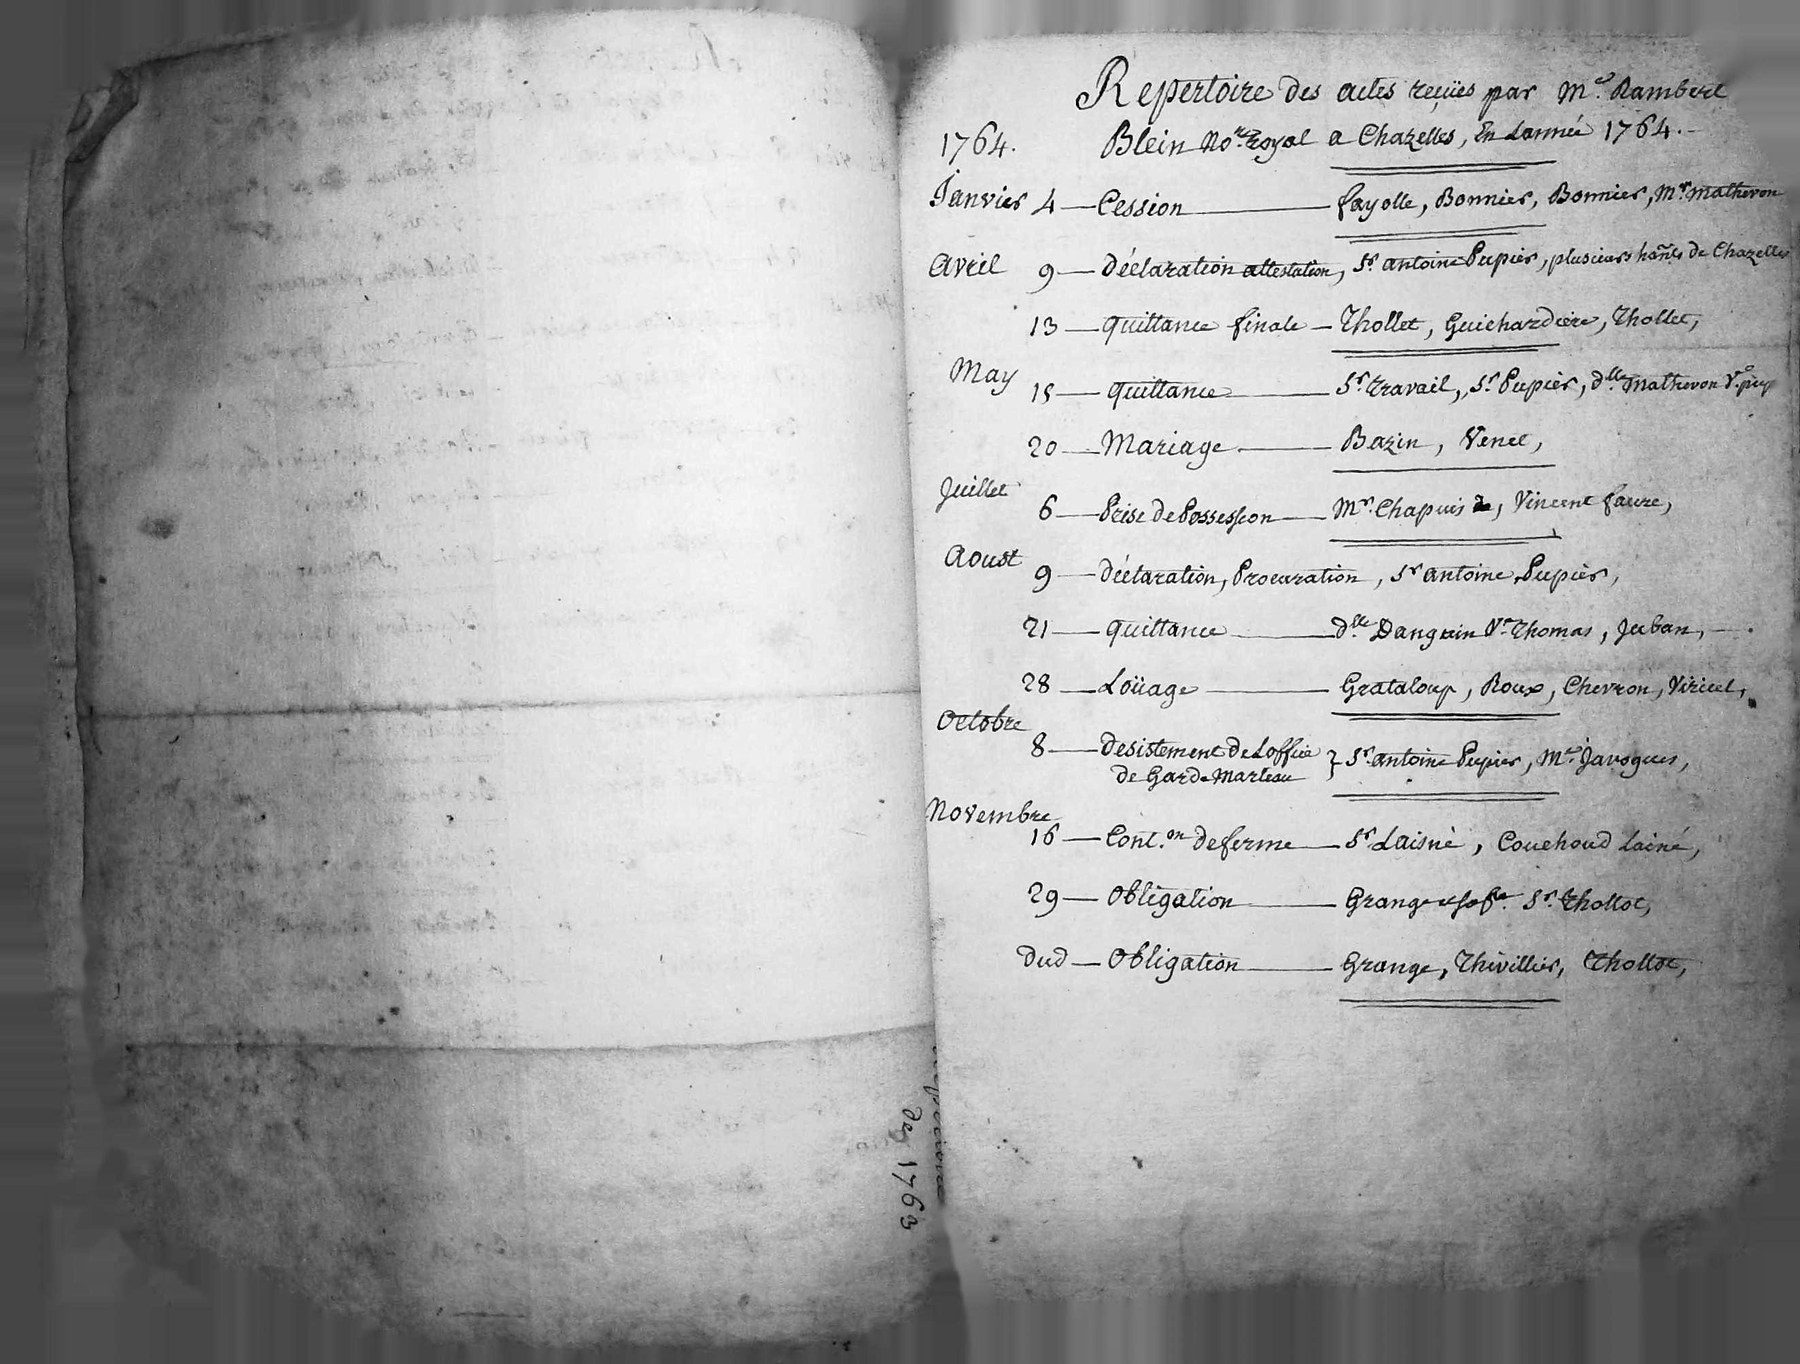 Repertoire des actes reçües par Me. Rambert
1764. Blein Nore. Royal a Chazelles, En Lannée 1764.
Janvier 4 — Cession — fayolle, Bonnier, Bonnier, Mr. Matheron
Avril 9 — déclaration attestation, Sr. antoine Pupier, plusieurs hañts de Chazelles
13 — quittance finale — Thollet, Guichardiere, Thollet,
May 15 — quittance — Sr. Travail, Sr. Pupier, dlle. Matheron Ve.
20 — Mariage — Bazin, Venet,
Juillet 6 — Prise de Possession — Mr. Chapuis, Vincent faure,
Aoust 9 — déclaration, Procuration, Sr antoine Pupier,
21 — quittance — dlle. Danguin Ve Thomas, Juban,
28 — Loüage — Grataloup, Roux, Chevron, Viricel,
Octobre 8 — desistement de Loffice } Sr. antoine Pupier, Me. Javogues,
de Garde Marteau
Novembre 16 — Cont.on de ferme — Sr. Laisné, Couchoud Lainé,
29 — Obligation — Grange et sa fe. Sr. Thollot,
dud — Obligation — Grange, Thivillier, Thollot,
1763